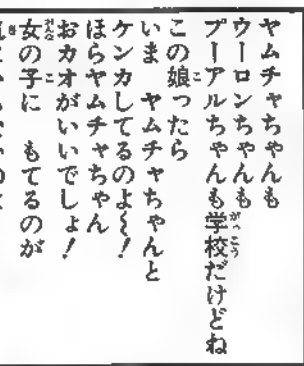 ヤムチャちゃんも
ウーロンちゃんも
プーアルちゃんも学校だけどね
この娘ったら
いま ヤムチャちゃんと
ケンカしてるのよ〜!
ほらヤムチャちゃん
おカオがいいでしょ!
女の子に もてるのが